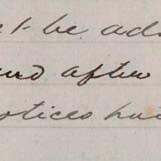 be ad
and after
notices ha